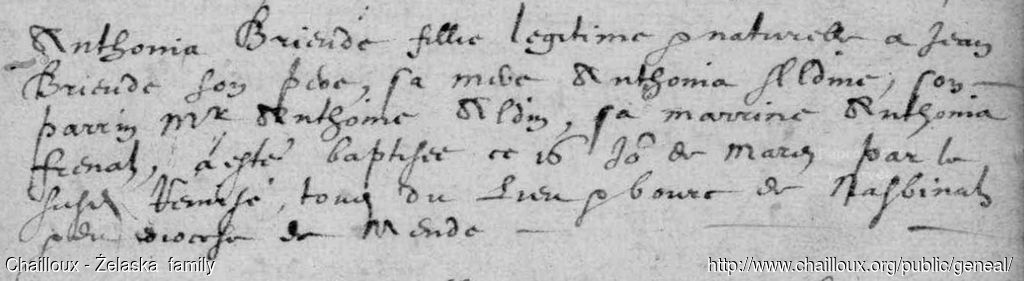 Anthonia Briende fillie legitime & naturelle a Jean
Briende son pere, sa mere Anthonia Aldine, son
parrin Mr Anthoine Aldin, sa marrine Anthonia
frenal, a esté baptisee ce 16 Jo de Mars par le
susd tous du Lieu & bourc de Nasbinals
diocese de Mende
Chailloux - Żelaska family
http://www.chailloux.org/public/geneal/